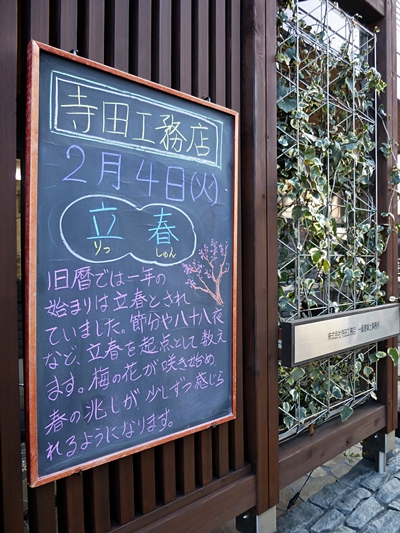 寺田工務店
2月4日(火)
立春
りっしゅん
旧暦では一年の
始まりは立春とされ
ていました。節分や八十八夜
など、立春を起点として数え
ます。梅の花が咲き始め
春の兆しが少しずつ感じら
れるようになります。
株式会社寺田工務店 一級建築士事務所